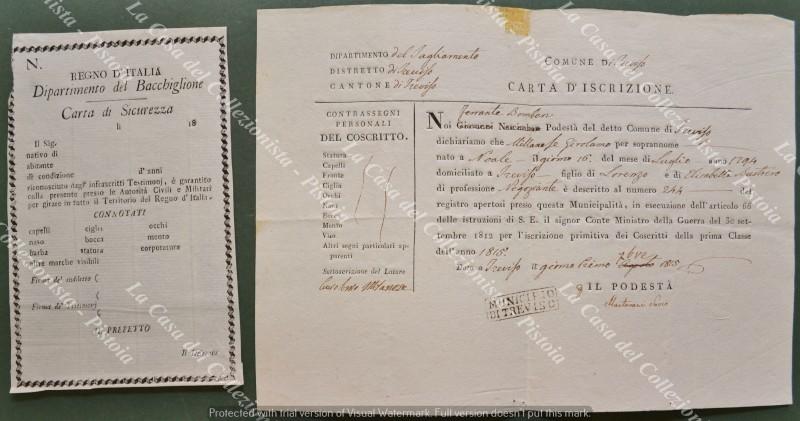 N.
REGNO D'ITALIA
Dipartimento del Bacchiglione
Carta di Sicurezza
li 18
Il Sig.
nativo di
abitante
di condizione d'anni
riconosciuto dagl'infrascritti Testimonj, è garantito
colla presente presso le Autorità Civili e Militari
per girare in tutto il Territorio del Regno d'Italia.
CONNOTATI
capelli ciglia occhi
naso bocca mento
barba statura corporatura
altre marche visibili
Firma del suddetto (
Firme de' Testimonj (
IL PREFETTO
Il Segretario
DIPARTIMENTO del Tagliamento
DISTRETTO di Treviso
CANTONE di Treviso
COMUNE DI Treviso
CARTA D'ISCRIZIONE.
CONTRASSEGNI
PERSONALI
DEL COSCRITTO.
Statura
Capelli
Fronte
Ciglia
Occhi
Naso
Bocca
Mento
Viso
Altri segni particolari ap-
parenti
Sottoscrizione del Latore
Ferrante Bomben
Noi Giovanni Podestà del detto Comune di Treviso
dichiariamo che Millanese Girolamo per soprannome
nato a Noale - il giorno 16. del mese di Luglio anno 1794
domiciliato a Treviso figlio di Lorenzo e di Elisabetta
di professione Negoziante è descritto al numero 244 del
registro apertosi presso questa Municipalità, in esecuzione dell'articolo 66
delle istruzioni di S. E. il signor Conte Ministro della Guerra del 30 set-
tembre 1812 per l'iscrizione primitiva dei Coscritti della prima Classe
dell'anno 1815.
Data a Treviso il giorno Primo 1813
IL PODESTÀ
MUNICIPIO
DI TREVISO
La Casa del Collezionista - Pistoia
Protected with trial version of Visual Watermark. Full version doesn't put this mark.